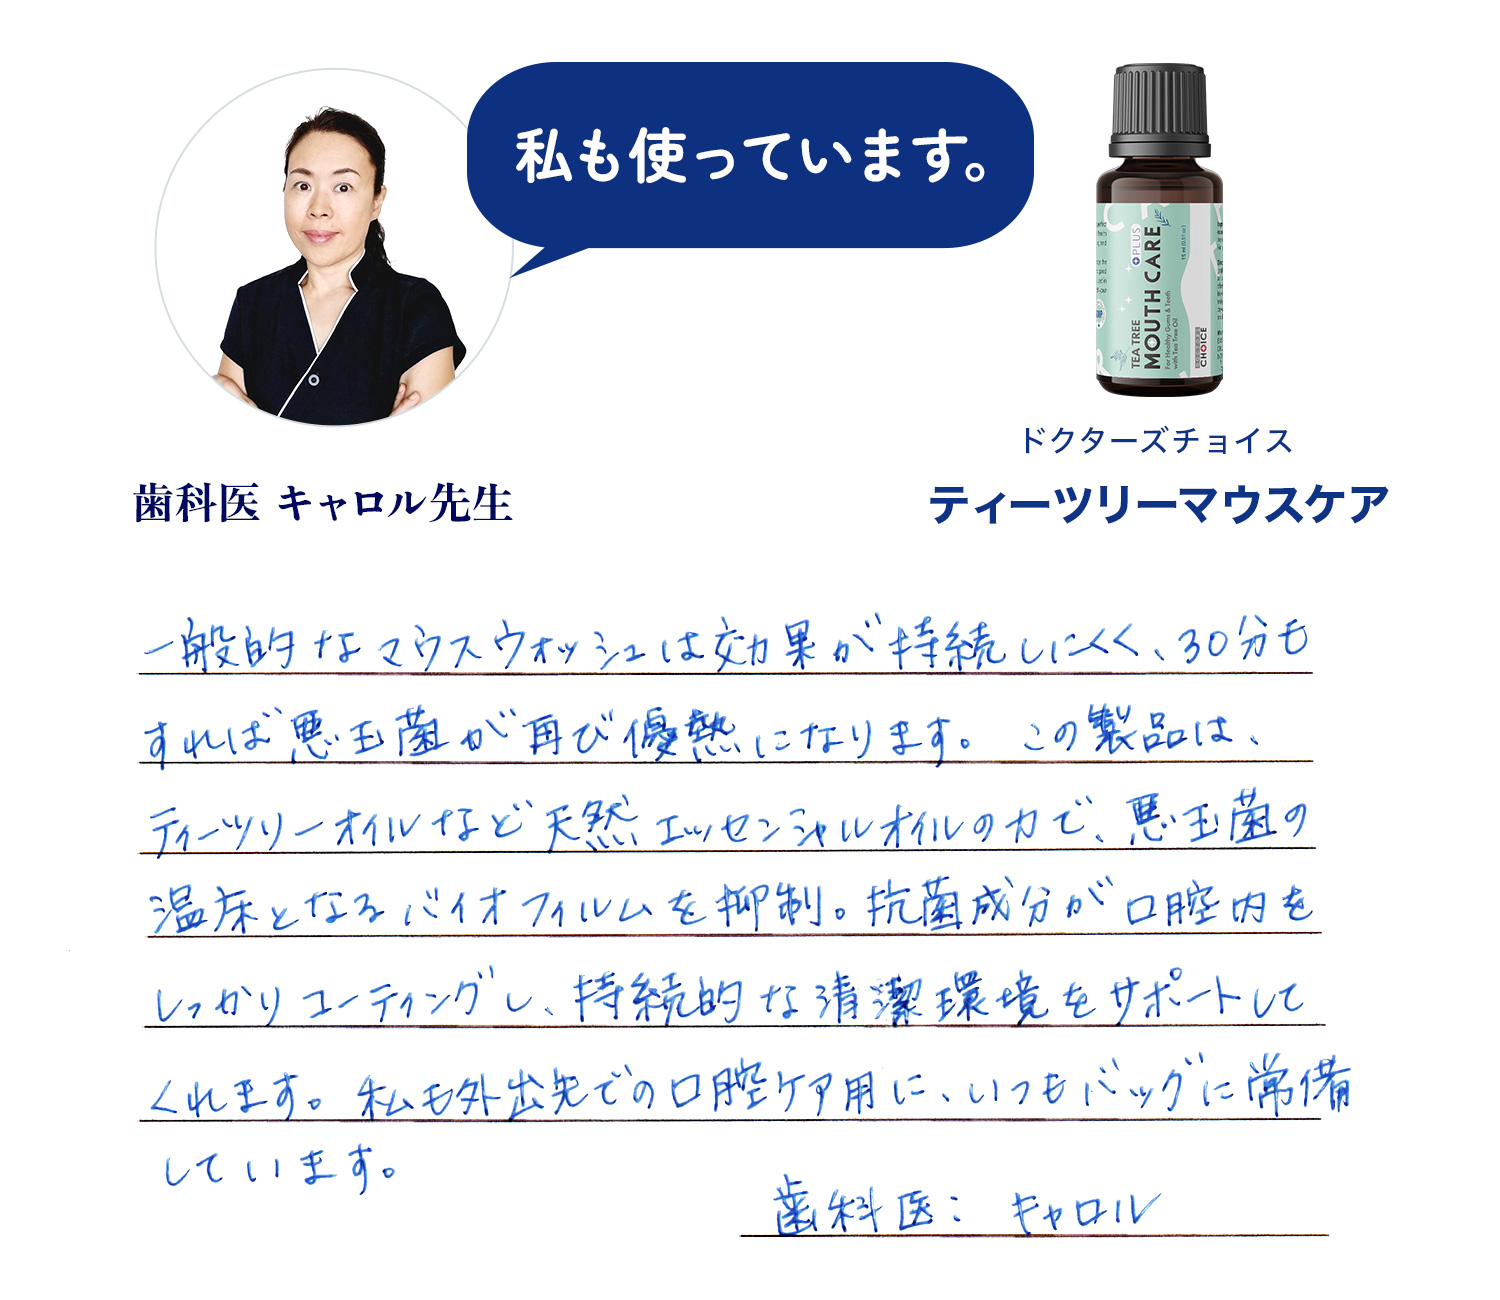 私も使っています。
TEA TREE
MOUTH CARE
PLUS
For Healthy Gums & Teeth
with Tea Tree Oil
15 ml (0.51 oz)
CHOICE
ドクターズチョイス
歯科医 キャロル先生
ティーツリーマウスケア
一般的なマウスウォッシュは効果が持続しにくく、30分も
すれば悪玉菌が再び優熱になります。 この製品は、
ティーツリーオイルなど天然エッセンシャルオイルの力で、悪玉菌の
温床となるバイオフィルムを抑制。抗菌成分が口腔内を
しっかりコーティングし、持続的な清潔環境をサポートして
くれます。私も外出先での口腔ケア用に、いつもバッグに常備
しています。
歯科医： キャロル